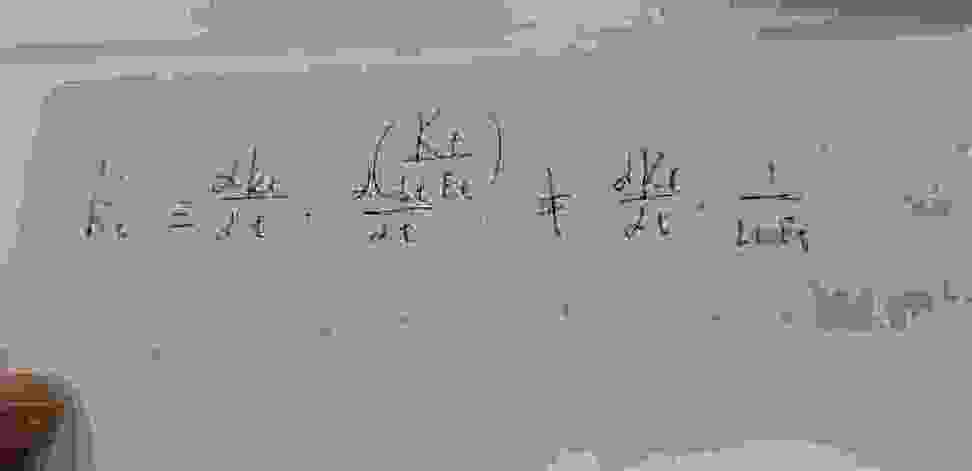 k̇t ≡ dkt/dt · d(Kt/LtEt)/dt ≠ dKt/dt · 1/LtEt